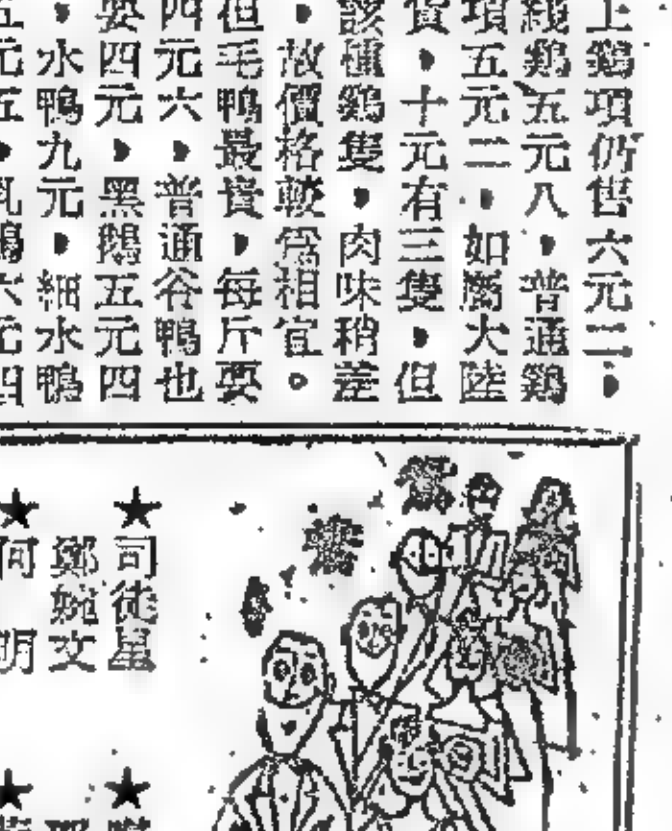 上鷄項仍售六元二，
綫鷄五元八，普通鷄
項五元二，如屬大陸
貨，十元有三隻，但
該種鷄隻，肉味稍差
，故價格較爲相宜。
但毛鴨最貴，每斤要
四元六，普通谷鴨也
要四元，黑鵝五元四
，水鴨九元，細水鴨
五元五，乳鴿六元四
★司徒星
鄭婉文
★何 明
★
★